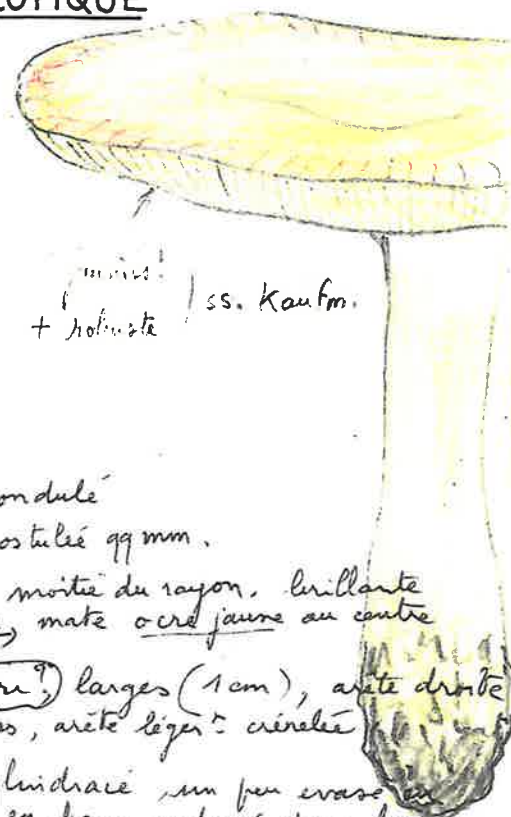 ss. Kaufm.
+ robuste
ondulé
ostulée qq mm.
moitié du rayon. brillante
→ mate ocre jaune au centre
larges (1 cm), arête droite
arête légert crénelée
lindracé, un peu evasé au